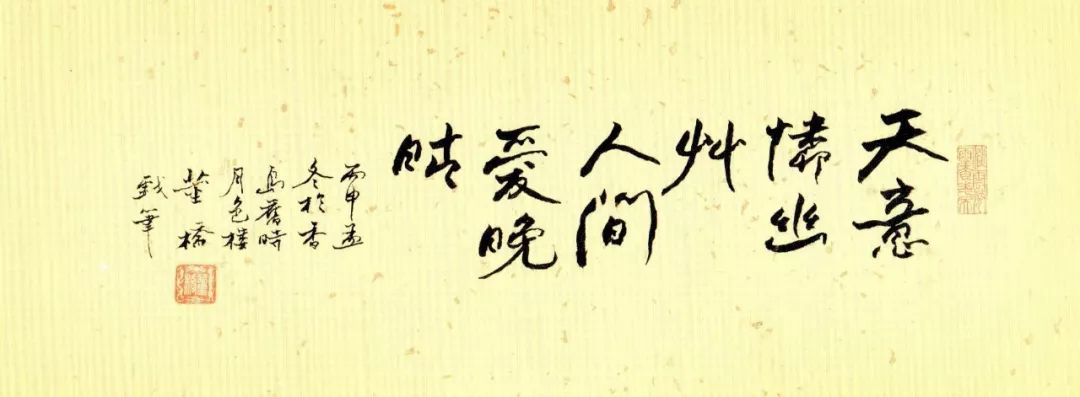 天意
憐幽
艸
人間
愛晚
晴
丙申孟
冬於香
島舊時
月色樓
董橋
戲筆